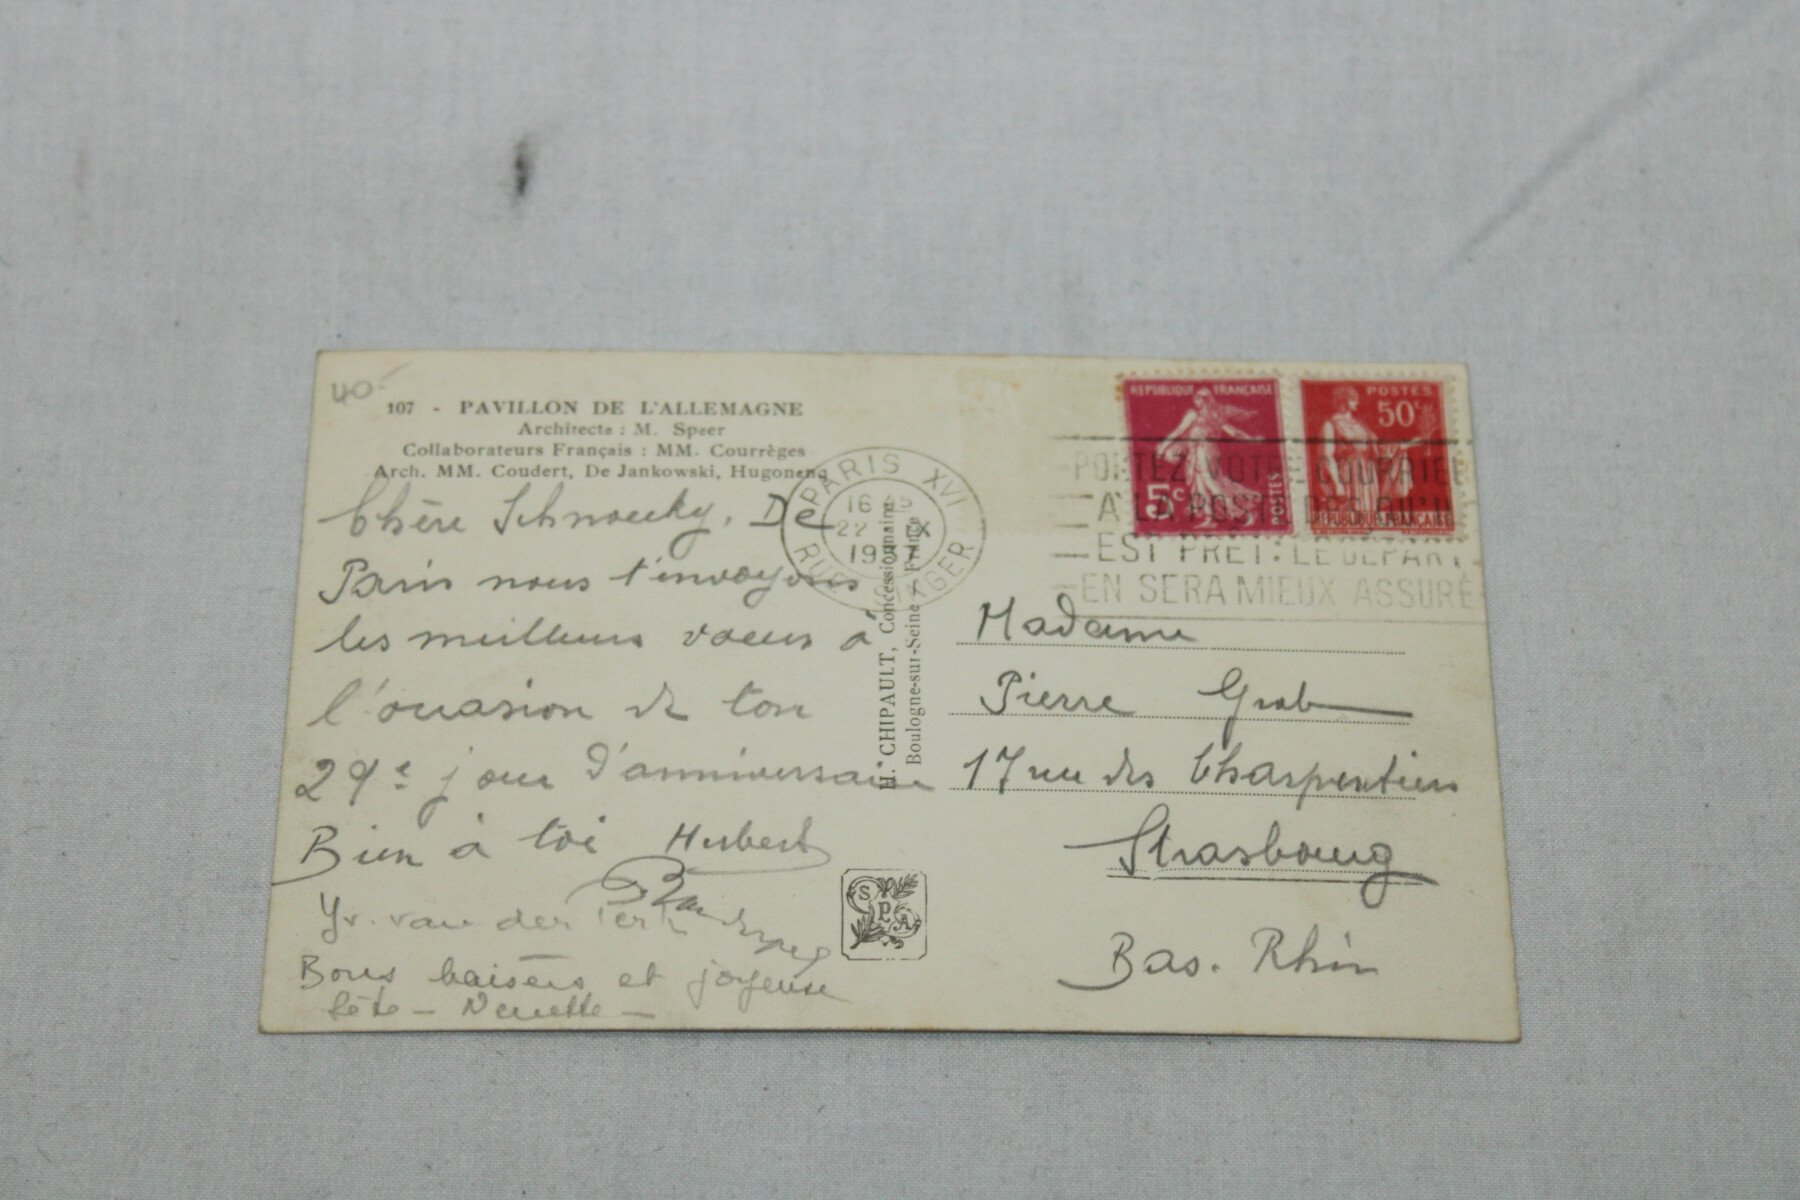 40.-
107 - PAVILLON DE L'ALLEMAGNE
Architecte : M. Speer
Collaborateurs Français : MM. Courrèges
Arch. MM. Coudert, De Jankowski, Hugoneng
Chère Schnoucky, De
Paris nous t'envoyons
les meilleurs voeux à
l'occasion de ton
29e jour d'anniversaire
Bien à toi Hubert
Yv. van der
Bons baisers et joyeuse
fête - Nenette -
PARIS XVI
16
22 IX
1937
RUE SINGER
H. CHIPAULT, Concessionnaire
Boulogne-sur-Seine / France
SPA
REPUBLIQUE FRANÇAISE
5c
POSTES
POSTES
50c
REPUBLIQUE FRANÇAISE
PORTEZ VOTRE COURRIER
A LA POSTE DES QU'IL
EST PRET : LE DEPART
EN SERA MIEUX ASSURÉ
Madame
Pierre Grab
17 rue des Charpentiers
Strasbourg
Bas. Rhin